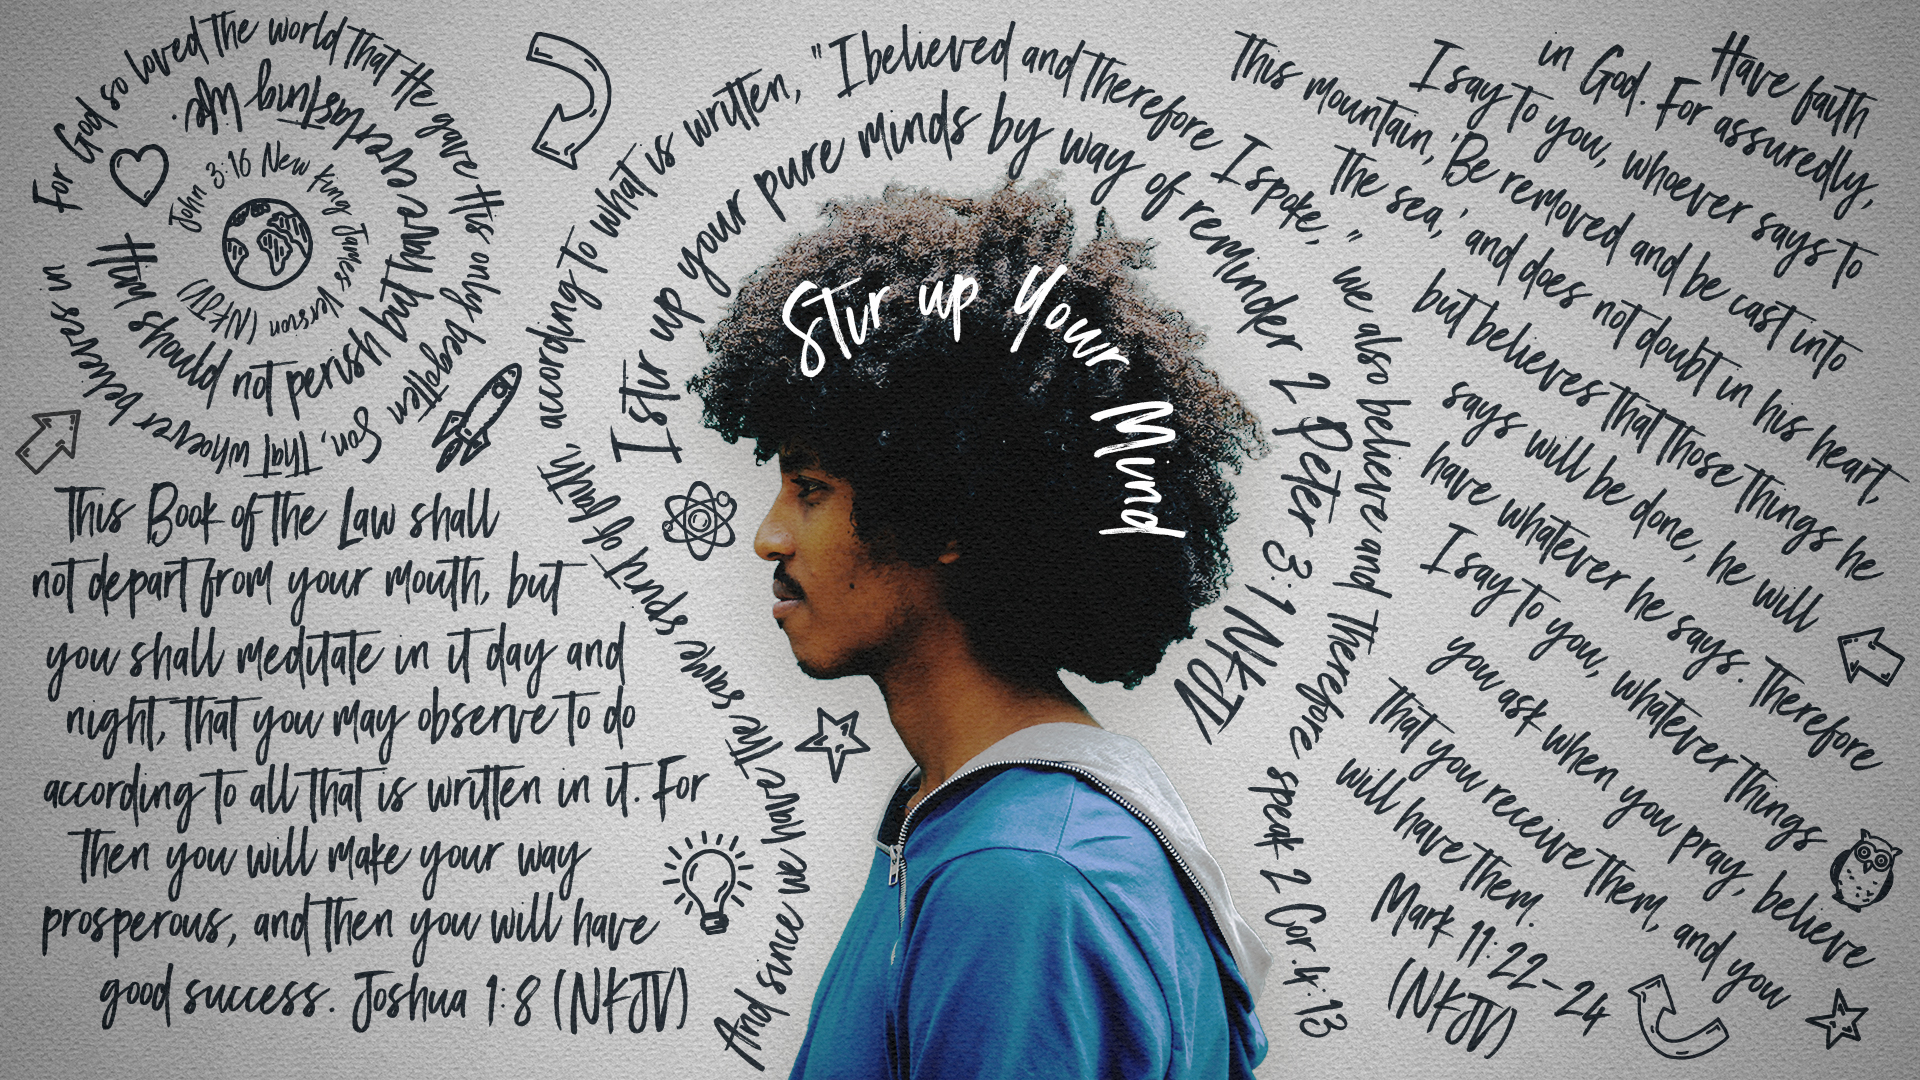 For God so loved the world that He gave His only begotten Son, that whoever believes in
Him should not perish but have everlasting life.
John 3:16 New King James Version (NKJV)
This Book of the Law shall
not depart from your mouth, but
you shall meditate in it day and
night, that you may observe to do
according to all that is written in it. For
then you will make your way
prosperous, and then you will have
good success. Joshua 1:8 (NKJV)
And since we have the same spirit of faith, according to what is written, "I believed and therefore I spoke," we also believe and therefore speak 2 Cor.4:13
I stir up your pure minds by way of reminder 2 Peter 3:1 NKJV
Stir up Your Mind
Have faith
in God. For assuredly,
I say to you, whoever says to
this mountain, 'Be removed and be cast into
the sea,' and does not doubt in his heart,
but believes that those things he
says will be done, he will
have whatever he says. Therefore
I say to you, whatever things
you ask when you pray, believe
that you receive them, and you
will have them.
Mark 11:22-24
(NKJV)